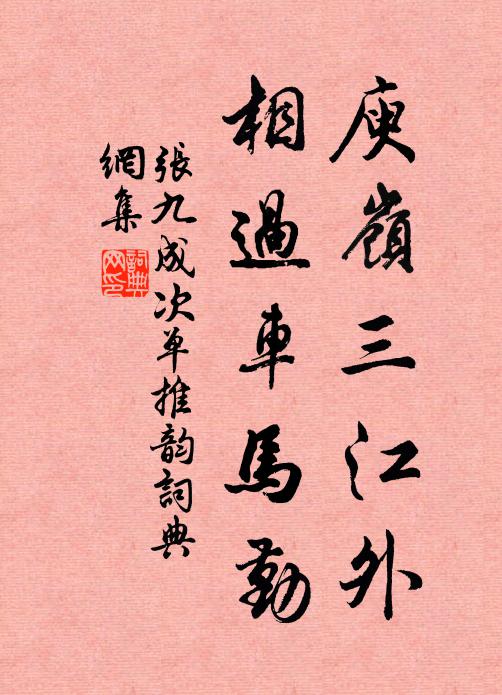 庾嶺三江外
相過車馬勤
張九成次單推韵詞典
網集
詞典
网印